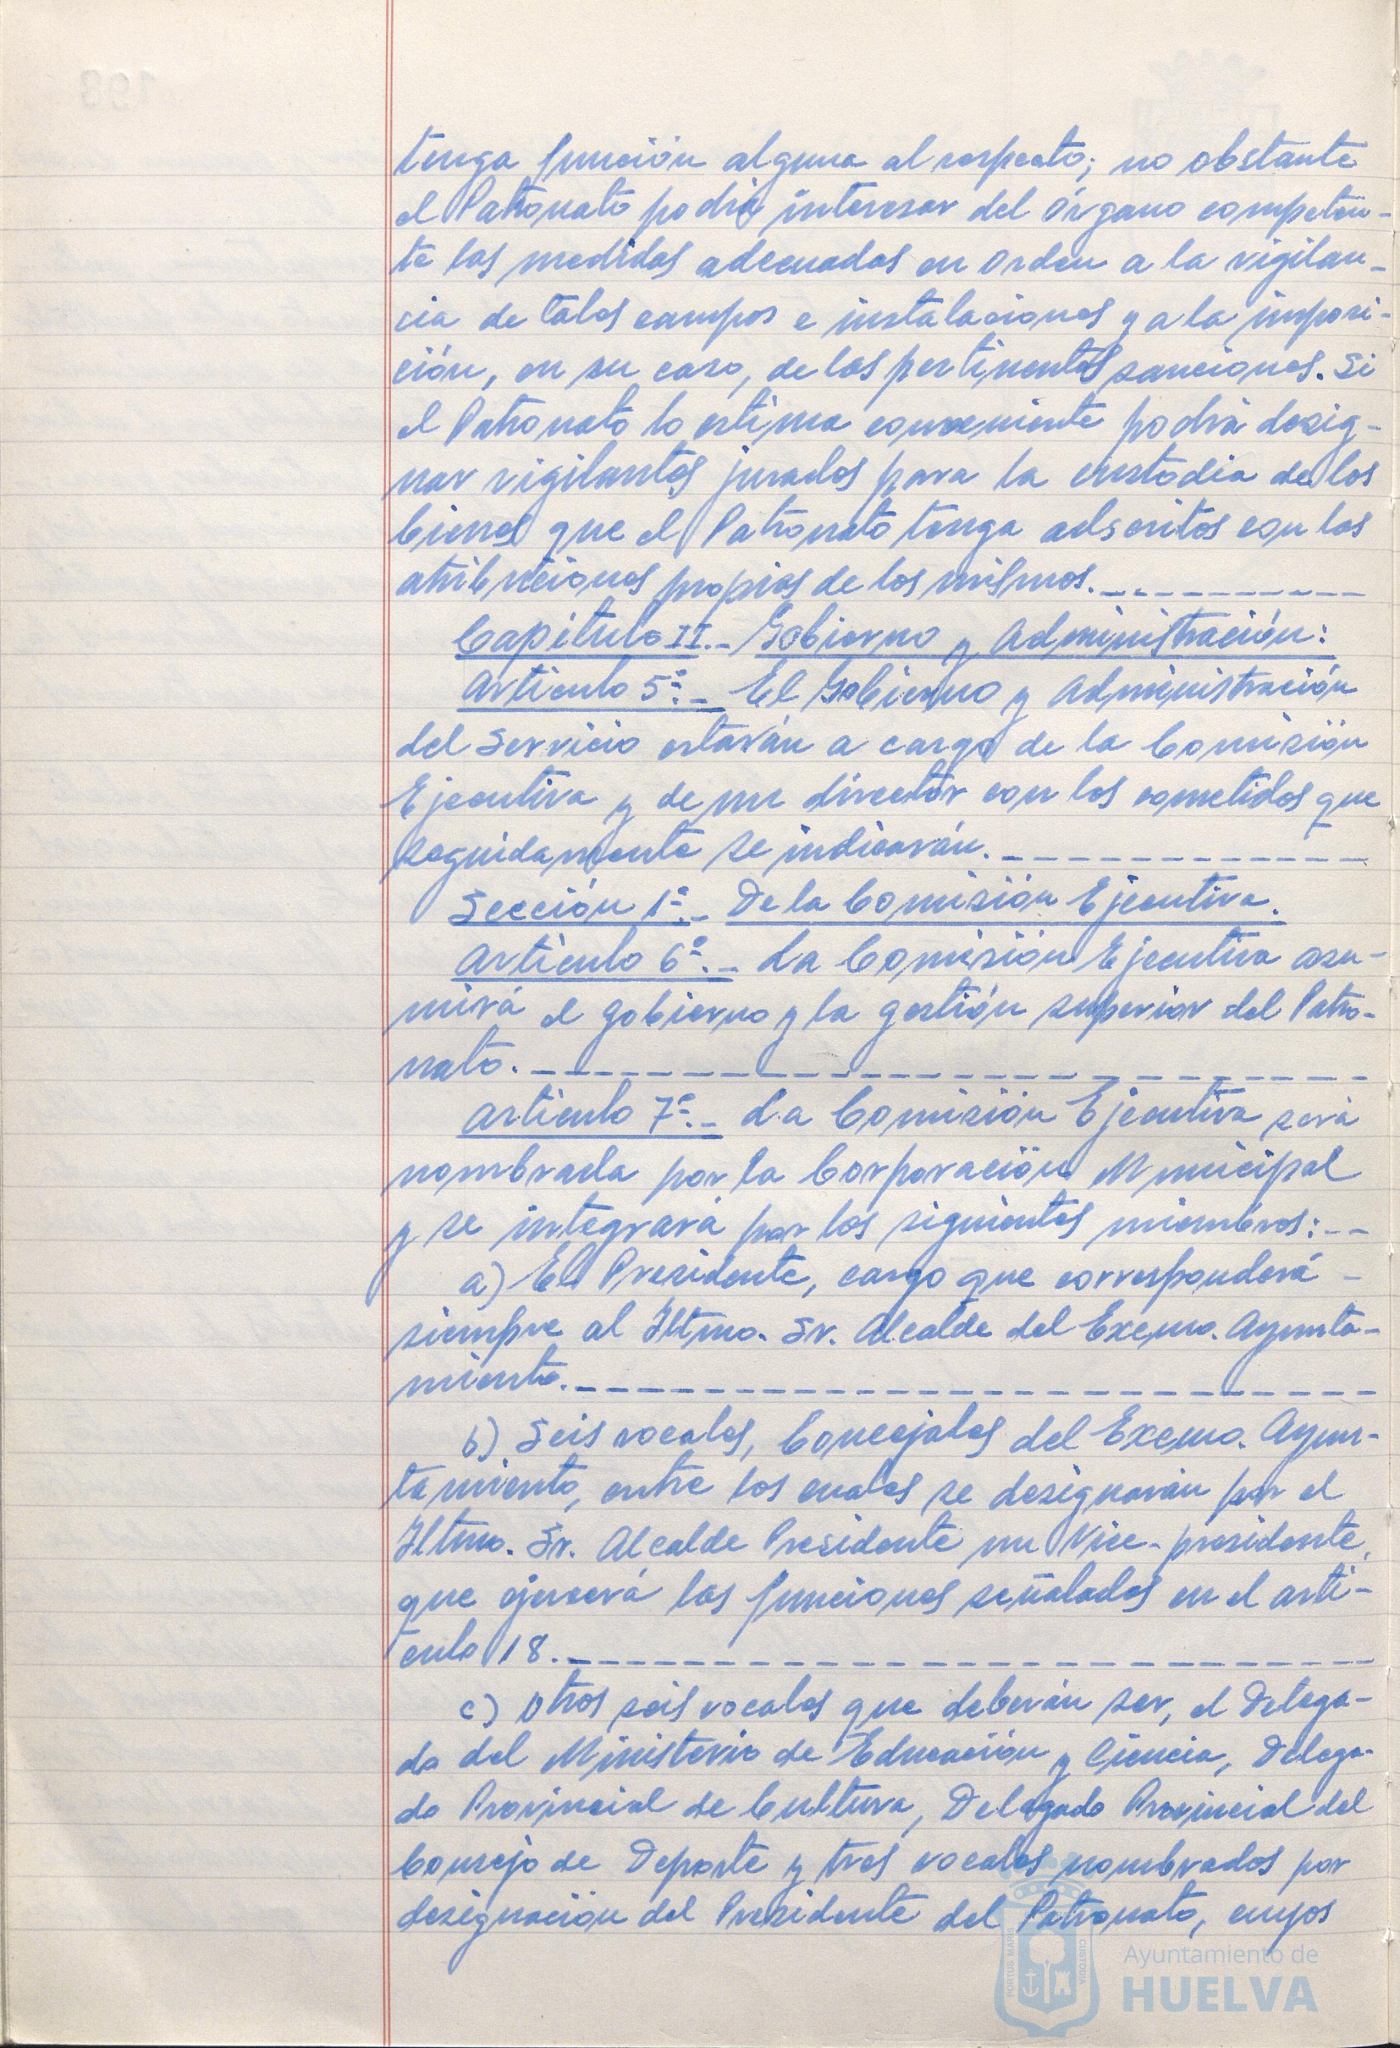 tenga función alguna al respecto; no obstante
el Patronato podrá interesar del órgano competen-
te las medidas adecuadas en orden a la vigilan-
cia de tales campos e instalaciones y a la imposi-
ción, en su caso, de las pertinentes sanciones. Si
el Patronato lo estima conveniente podrá desig-
nar vigilantes jurados para la custodia de los
bienes que el Patronato tenga adscritos con las
atribuciones propias de los mismos.
Capítulo II.- Gobierno y Administración:
Artículo 5º.- El Gobierno y Administración
del Servicio estarán a cargo de la Comisión
Ejecutiva y de un director con los cometidos que
seguidamente se indicarán.
Sección 1ª.- De la Comisión Ejecutiva.
Artículo 6º.- La Comisión Ejecutiva asu-
mirá el gobierno y la gestión superior del Patro-
nato.
Artículo 7º.- La Comisión Ejecutiva será
nombrada por la Corporación Municipal
y se integrará por los siguientes miembros:
a) El Presidente, cargo que corresponderá
siempre al Iltmo. Sr. Alcalde del Excmo. Ayunta-
miento.
b) Seis vocales, Concejales del Excmo. Ayun-
tamiento, entre los cuales se designarán por el
Iltmo. Sr. Alcalde Presidente un Vice-presidente,
que ejercerá las funciones señaladas en el artí-
culo 18.
c) Otros seis vocales que deberán ser, el Delega-
do del Ministerio de Educación y Ciencia, Delega-
do Provincial de Cultura, Delegado Provincial del
Consejo de Deporte y tres vocales nombrados por
designación del Presidente del Patronato, cuyos
PORTUS MARIS
CUSTODIA
Ayuntamiento de
HUELVA